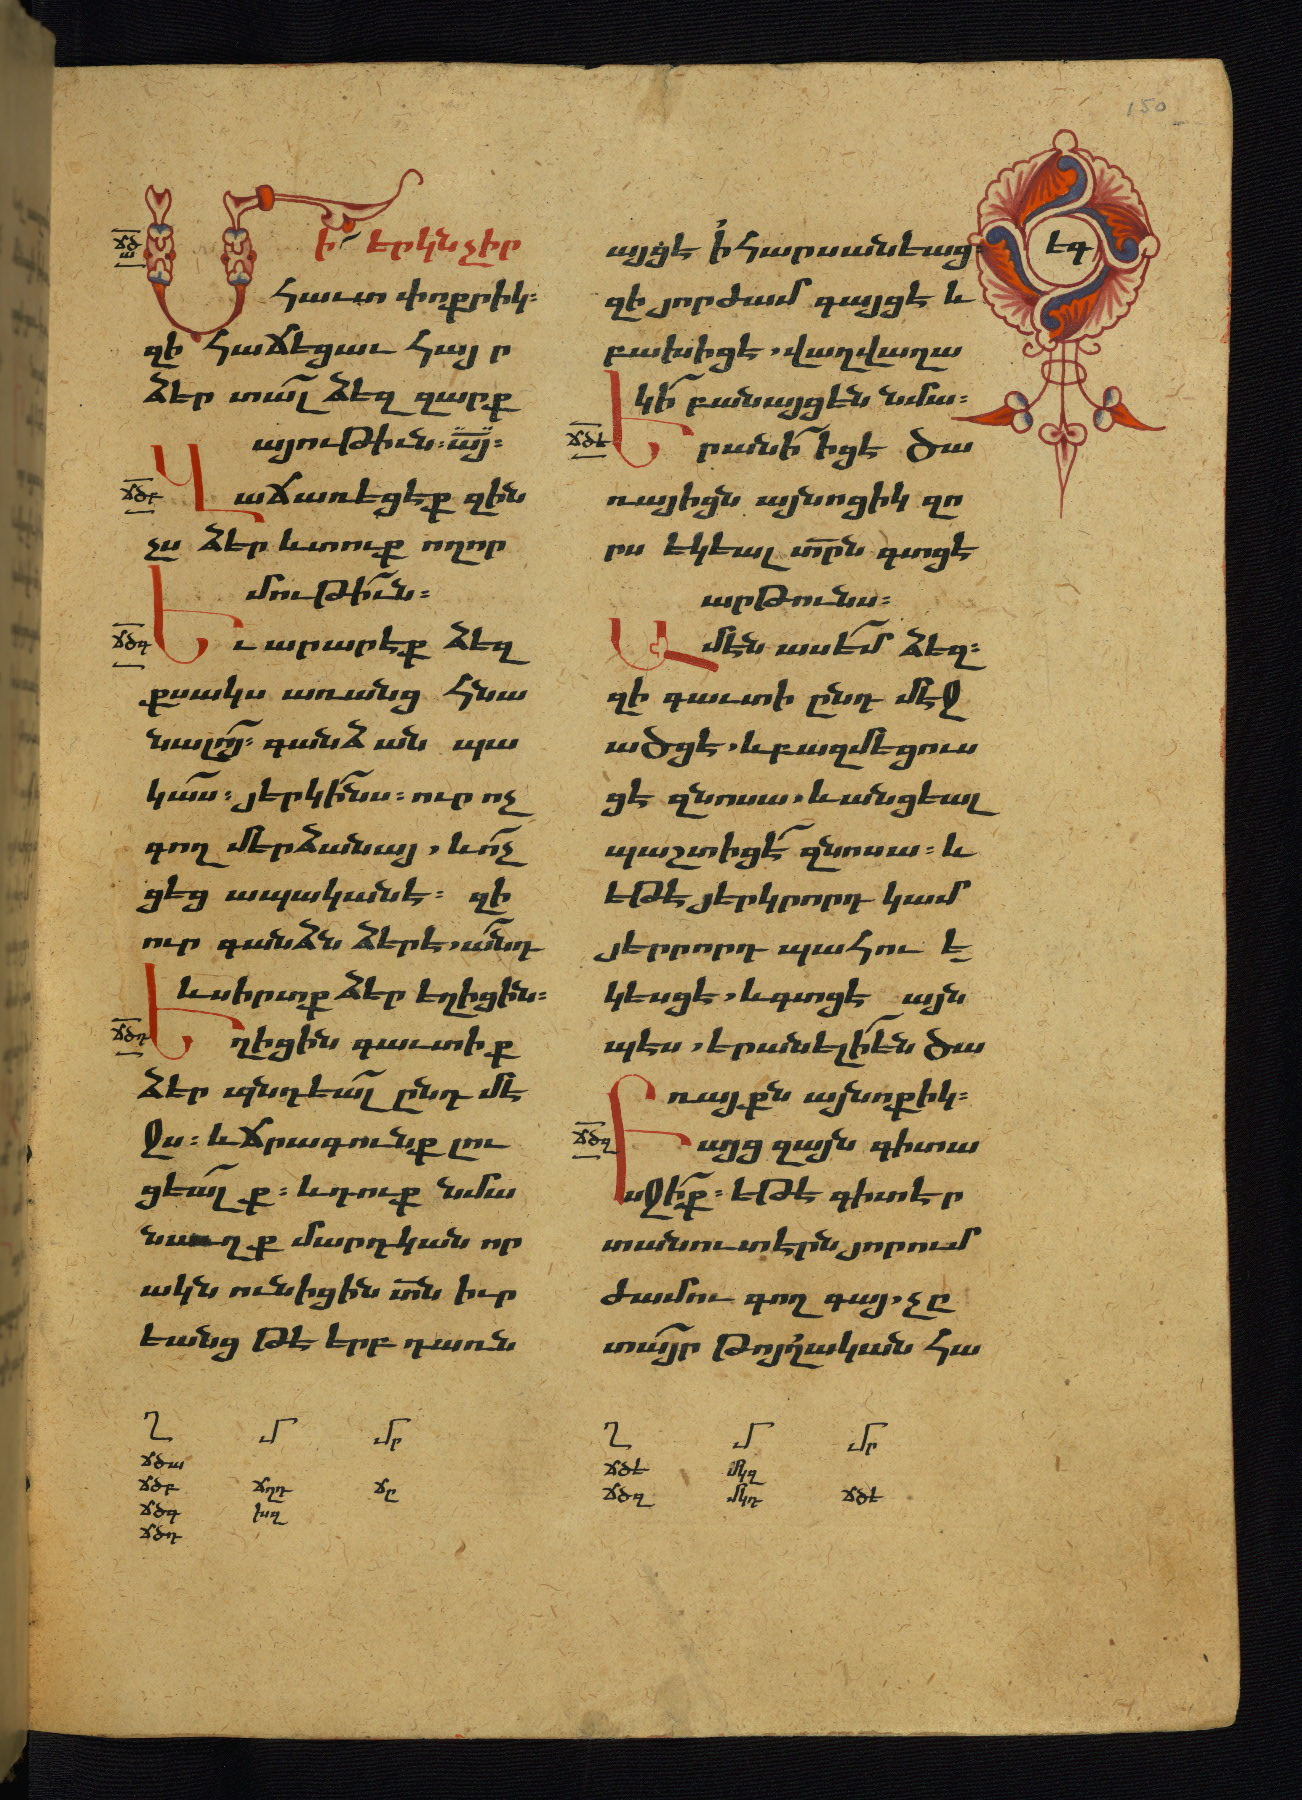 ՃԾԱ
Մի՛ երկնչիր
հաւտ փոքրիկ։
զի հաճեցաւ հայր
ձեր տալ ձեզ զարք
այութիւն։ այ։
ՃԾԲ
Վաճառեցէք զին
չս ձեր և տուք ողոր
մութիւն։
ՃԾԳ
Եւ արարէք ձեզ
քսակս առանց հնա
նալոյ։ գանձ ան պա
կաս։ յերկինս։ ուր ոչ
գող մերձանայ, և ոչ
ցեց ապականէ։ զի
ուր գանձն ձեր է, անդ
և սիրտք ձեր եղիցին։
ՃԾԴ
Եղիցին գաւտիք
ձեր պնդեալ ընդ մէ
ջս։ և ճրագունք լու
ցեալ ք։ և դուք նմա
նաւղք մարդկան որ
ակն ունիցին տն իւր
եանց թէ երբ դառն
այցէ ի հարսանեաց
զի յորժամ գայցէ և
բախիցէ, վաղվաղա
կի բանայցեն նմա։
ՃԾԵ
Երանի իցէ ծա
ռայիցն այնոցիկ զո
րս եկեալ տրն գտցէ
արթունս։
Ամէն ասեմ ձեզ։
զի գաւտի ընդ մէջ
ածցէ, և բազմեցուս
ցէ զնոսա, և անցեալ
պաշտիցէ զնոսա։ և
եթէ յերկրորդ կամ
յերրորդ պահու ե
կեսցէ, և գտցէ այն
պէս, երանելի են ծա
ռայքն այնոքիկ։
ՃԾԶ
Բայց զայն գիտա
սջիք։ եթէ գիտէր
տանուտէրն յորում
ժամու գող գայ, չը
տայր թոյլ ական հա
150
Ղ Մ Մր
ՃԾԱ
ՃԾԲ ՃՂԴ ՃԸ
ՃԾԳ ԽԶ
ՃԾԴ
Ղ Մ Մր
ՃԾԵ ՄԿԶ
ՃԾԶ ՄԿԴ ՃԾԵ